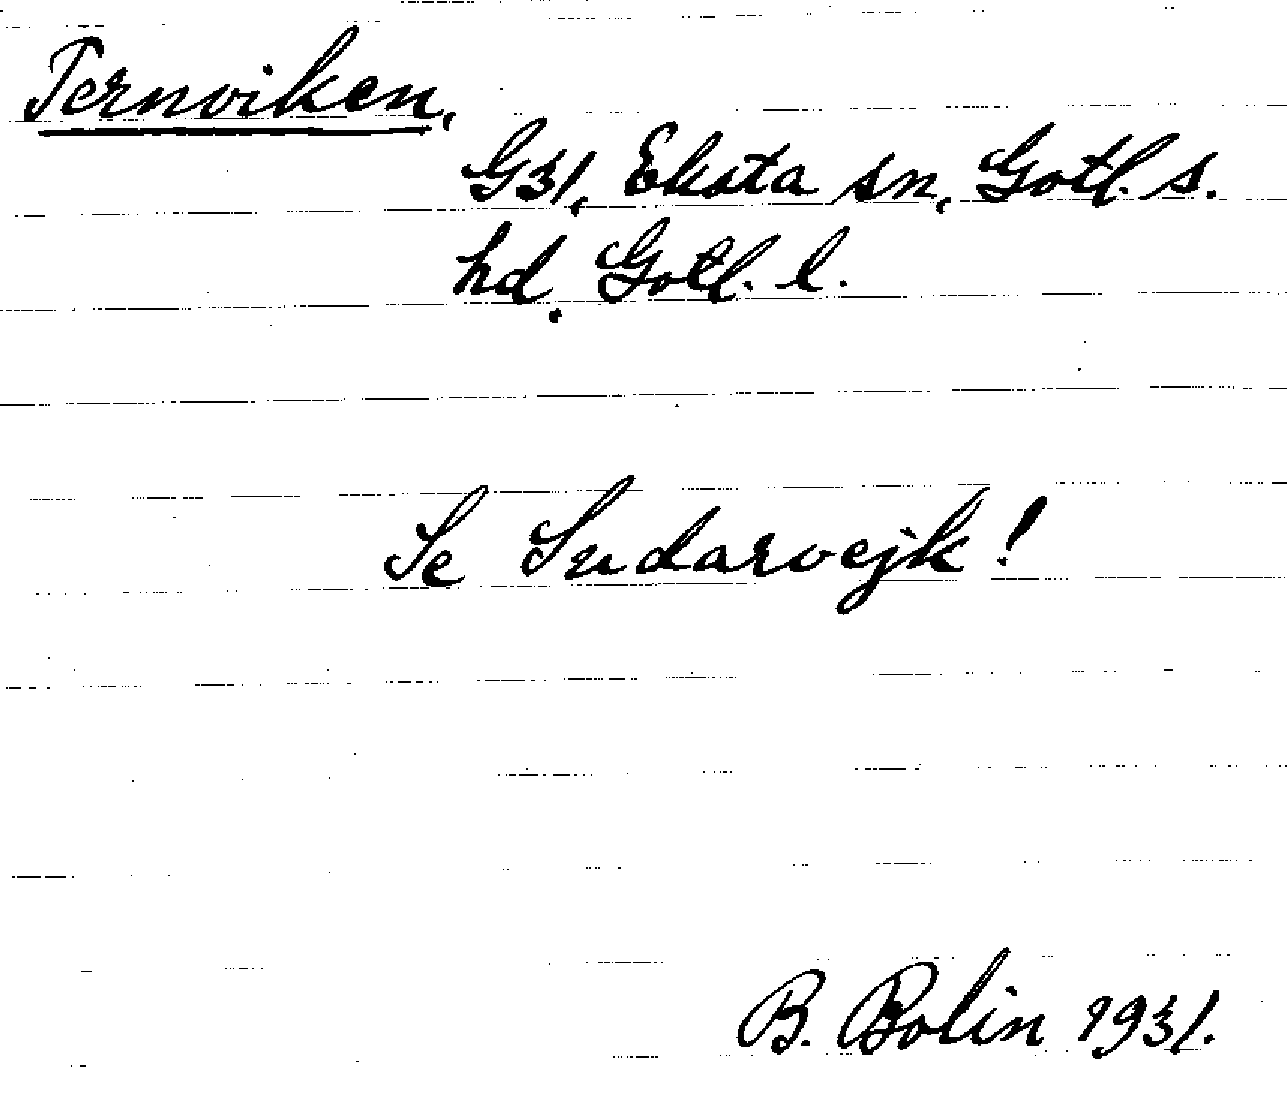 Ternviken,
G31, Eksta sn, Gotl. s.
hd. Gotl. l.
Se Sudarvejk!
B. Bolin 1931.